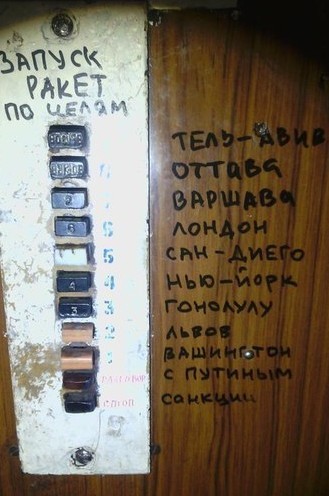 ЗАПУСК
РАКЕТ
ПО ЦЕЛЯМ
ТЕЛЬ-АВИВ
ОТТАВА
8 ВАРШАВА
6 6 ЛОНДОН
5 САН-ДИЕГО
4 4 НЬЮ-ЙОРК
3 3 ГОНОЛУЛУ
2 ЛЬВОВ
1 ВАШИНГТОН
РАЗГОВОР С ПУТИНЫМ
СТОП САНКЦИИ